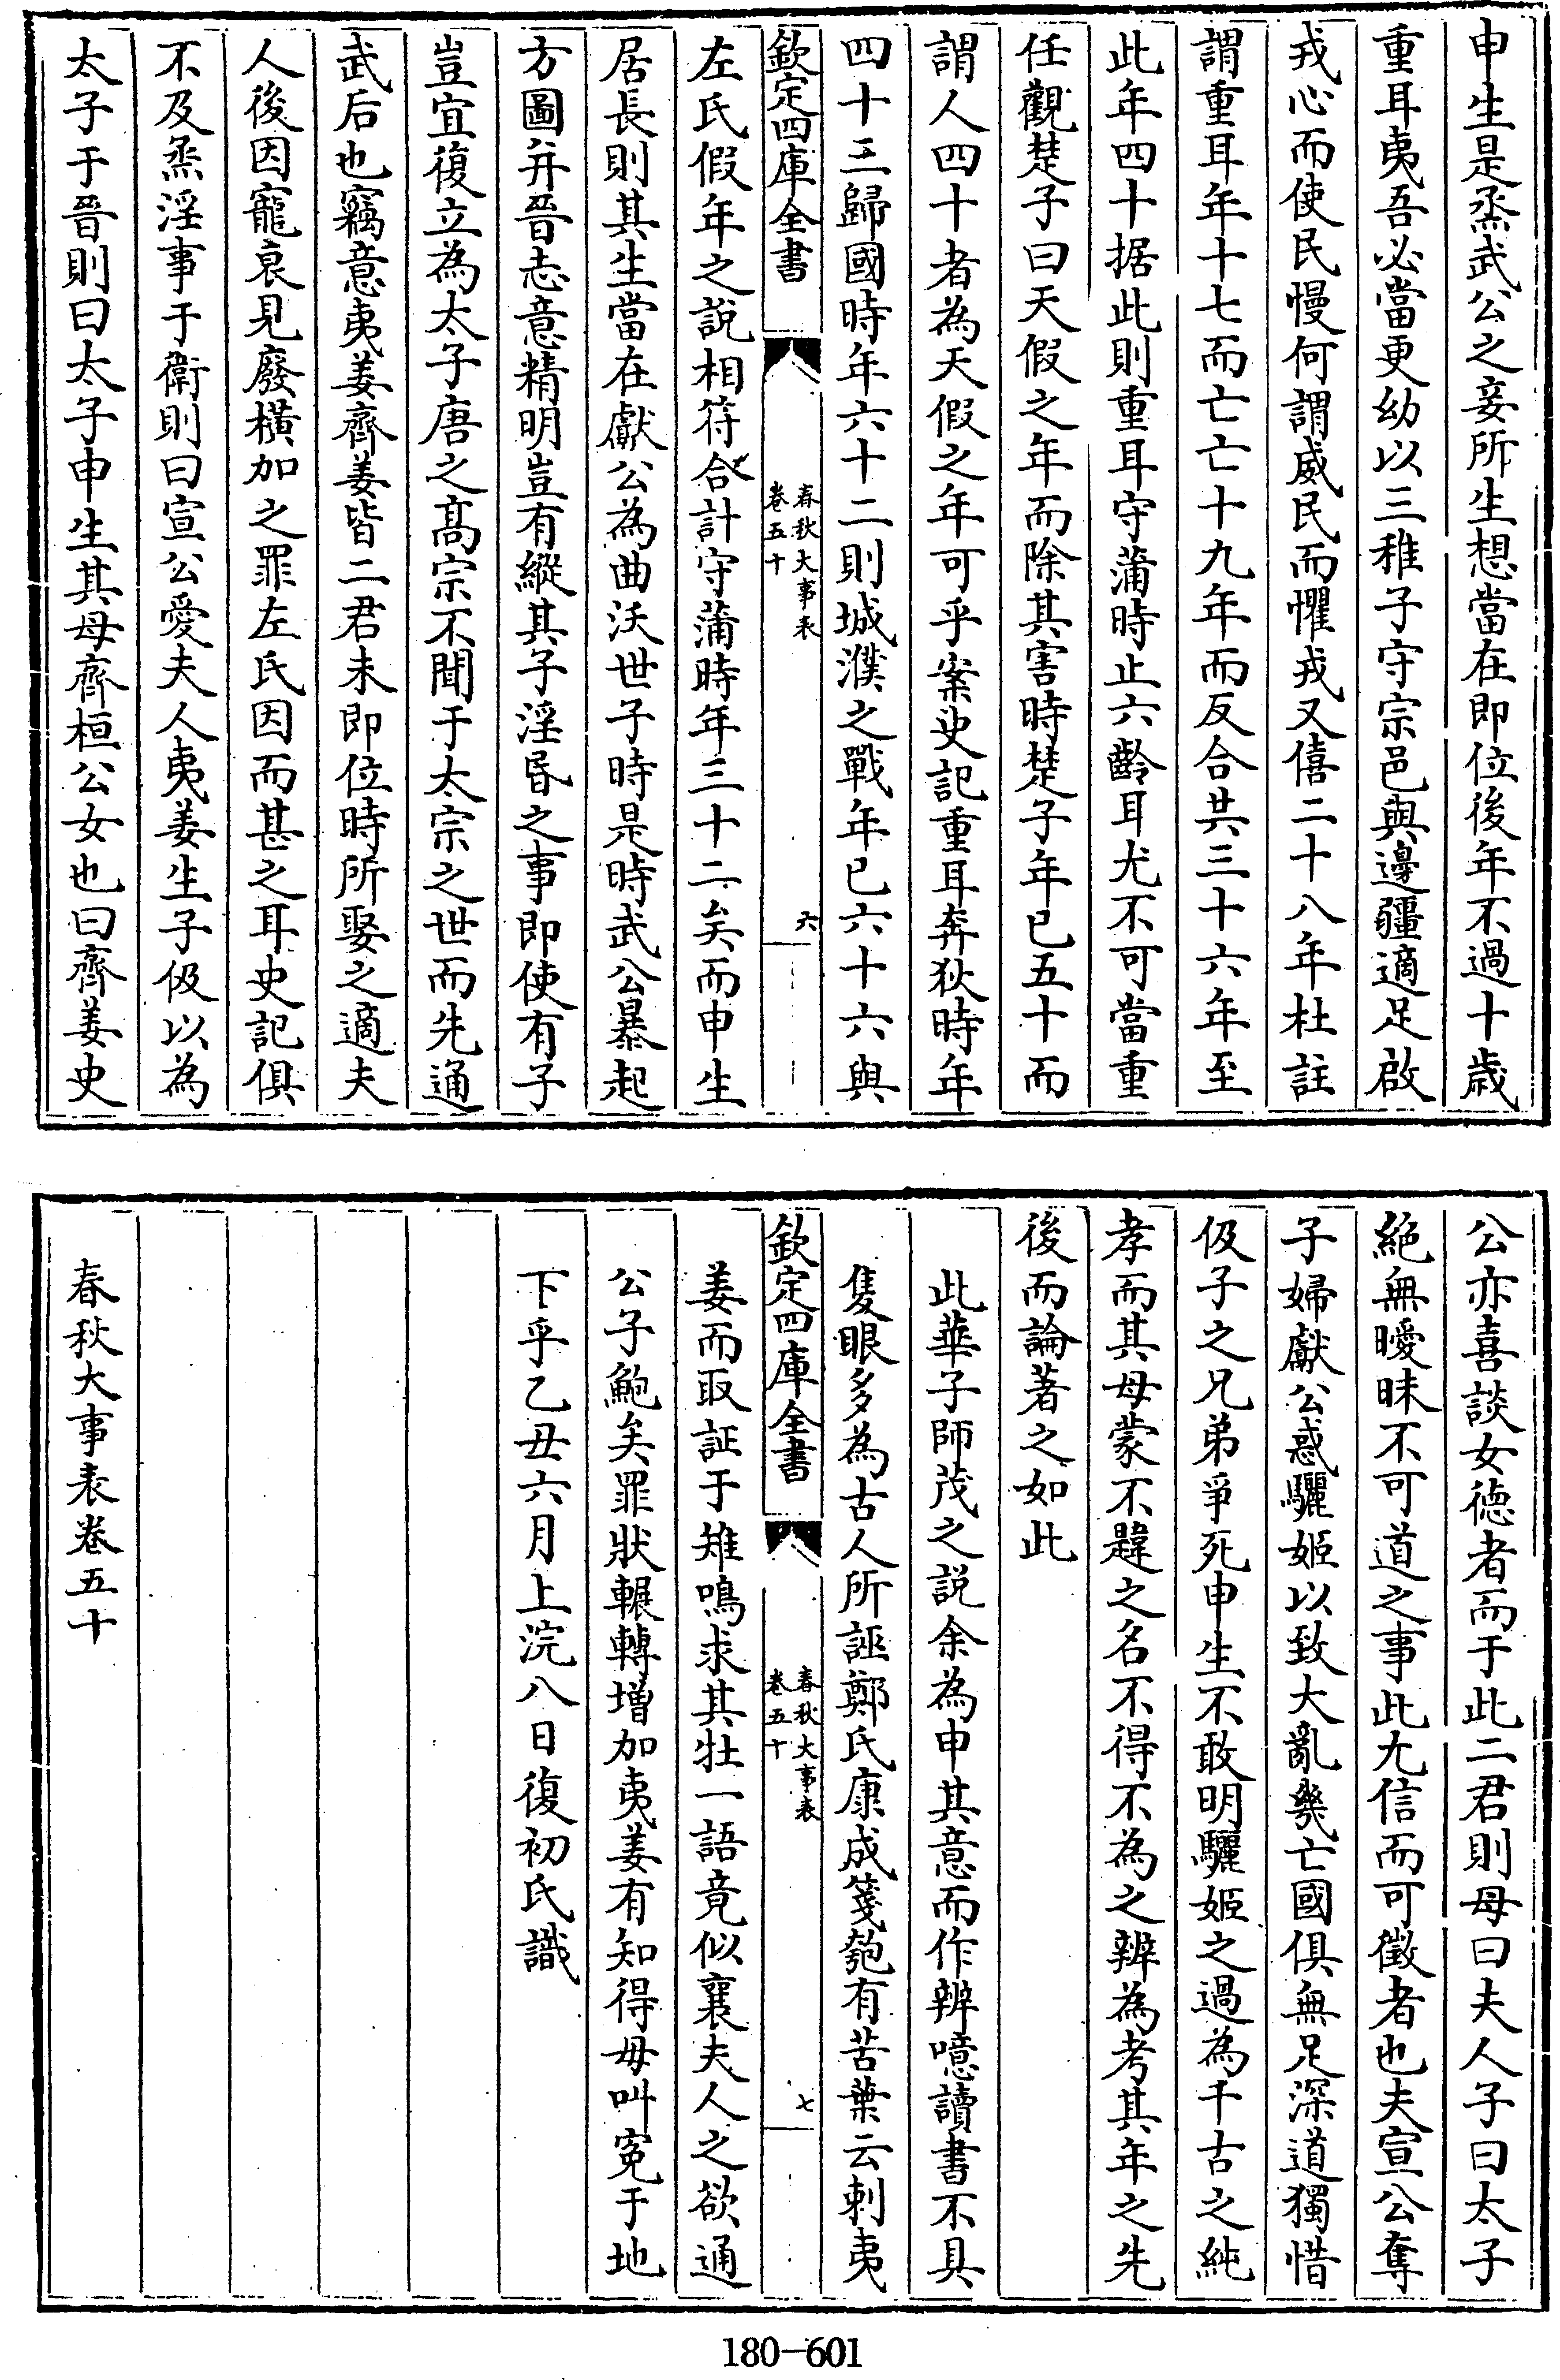 申生是烝武公之妾所生想當在即位後年不過十歲
重耳夷吾必當更幼以三稚子守宗邑與邊疆適足啟
戎心而使民慢何謂威民而懼戎又僖二十八年杜註
謂重耳年十七而亡亡十九年而反合共三十六年至
此年四十据此則重耳守蒲時止六齡耳尤不可當重
任觀楚子曰天假之年而除其害時楚子年已五十而
謂人四十者為天假之年可乎案史記重耳奔狄時年
四十三歸國時年六十二則城濮之戰年已六十六與
欽定四庫全書
春秋大事表
卷五十
六
左氏假年之說相符合計守蒲時年三十二矣而申生
居長則其生當在獻公為曲沃世子時是時武公暴起
方圖并晉志意精明豈有縱其子淫昬之事即使有子
豈宜復立為太子唐之髙宗不聞于太宗之世而先通
武后也竊意夷姜齊姜皆二君未即位時所娶之適夫
人後因寵衰見廢橫加之罪左氏因而甚之耳史記俱
不及烝淫事于衛則曰宣公愛夫人夷姜生子伋以為
太子于晉則曰太子申生其母齊桓公女也曰齊姜史
公亦喜談女德者而于此二君則母曰夫人子曰太子
絕無曖昧不可道之事此尤信而可徵者也夫宣公奪
子婦獻公惑驪姬以致大亂幾亡國俱無足深道獨惜
伋子之兄弟爭死申生不敢明驪姬之過為千古之純
孝而其母蒙不韙之名不得不為之辨為考其年之先
後而論著之如此
此華子師茂之説余為申其意而作辨噫讀書不具
隻眼多為古人所誣鄭氏康成箋匏有苦葉云刺夷
欽定四庫全書
春秋大事表
卷五十
七
姜而取証于雉鳴求其牡一語竟似襄夫人之欲通
公子鮑矣罪狀輾轉增加夷姜有知得毋叫寃于地
下乎乙丑六月上浣八日復初氏識
春秋大事表卷五十
180-601